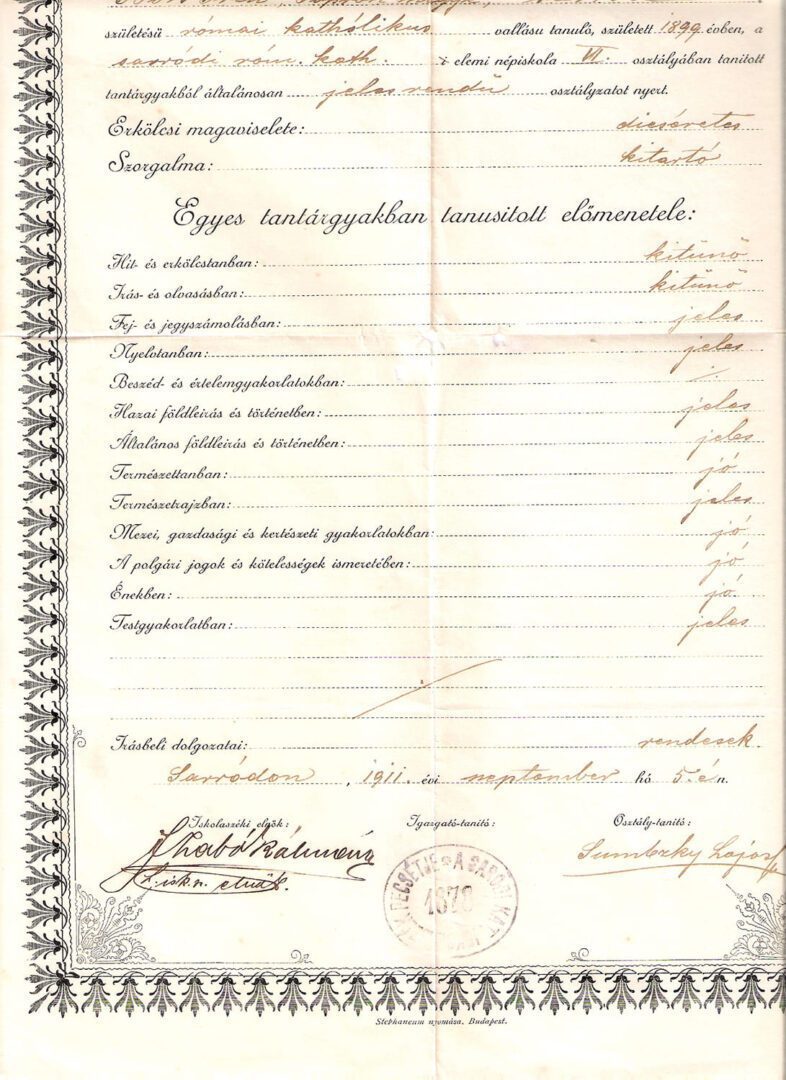 születésü római kathólikus vallásu tanuló, született 1899 évben, a
sarródi róm. kath. i elemi népiskola VI. osztályában tanitott
tantárgyakból általánosan jeles rendü osztályzatot nyert.
Erkölcsi magaviselete: dicséretes
Szorgalma: kitartó
Egyes tantárgyakban tanusitott előmenetele:
Hit- és erkölcstanban: kitünő
Irás- és olvasásban: kitünő
Fej- és jegyszámolásban: jeles
Nyelvtanban: jeles
Beszéd- és értelemgyakorlatokban:
Hazai földleirás és történetben: jeles
Általános földleirás és történetben: jeles
Természettanban: jó
Természetrajzban: jeles
Mezei, gazdasági és kertészeti gyakorlatokban: jó
A polgári jogok és kötelességek ismeretében: jó
Énekben: jó
Testgyakorlatban: jeles
Irásbeli dolgozatai: rendesek.
Sarródon, 1911. évi szeptember hó 5.-én.
Iskolaszéki elnök: Igazgató-tanitó: Osztály-tanitó:
Szabó Kálmán Lajos
1878
Stephaneum nyomása. Budapest.